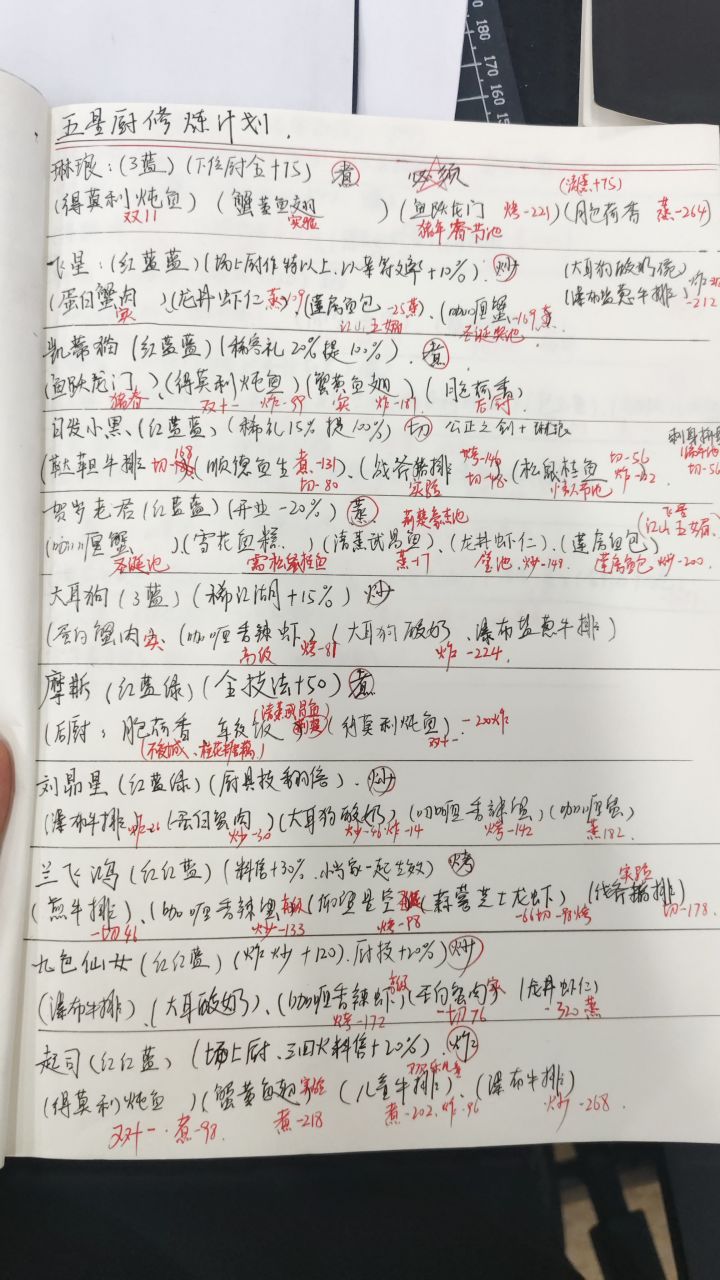 180
170
160
15
五星厨修炼计划.
琳琅：(3蓝)(下位厨金+75) 煮 必须
(清蒸+75)
(得莫利炖鱼)(蟹黄鱼翅)(鱼跃龙门 烤-221)(月色荷香 蒸-264)
双11 实验 猪年春节池
飞星：(红蓝蓝)(场上厨作特以上，以等符文率+10%). 炒 (大耳狗酸奶
(蛋白蟹肉)(龙井虾仁 蒸)、(莲房鱼包 -25蒸)、(咖喱蟹 -169蒸 (瀑布盐葱牛排) -212
实 江山 圣诞奖池
凯蒂猫 (红蓝蓝)(稀客礼20%提100%). 煮
(鱼跃龙门)、(得莫利炖鱼)(蟹黄鱼翅)(月色荷香)
猪春 双十一 炸-99 实 炸-181 后厨
白发小黑、(红蓝蓝)(稀礼15%提100%) 切 公正之剑+琳琅
(鞑靼牛排 切-168 (顺德鱼生 煮-131)、(战斧猪排 烤-146 (松鼠桂鱼 切-56
切-80 实验 切-48 炸-102 切-56
贺岁老君(红蓝蓝)(开业-20%) 蒸 荆楚豪杰池
飞星
(咖喱蟹)(雪花鱼糕)(清蒸武昌鱼)、(龙井虾仁)、(莲房鱼包)
圣诞池 需松鼠桂鱼 蒸-17 炒-149 莲房鱼包 炒-200.
大耳狗(3蓝)(稀江湖月+15%) 炒
(蛋白蟹肉实、(咖喱香辣虾)(大耳狗酸奶、瀑布盐葱牛排)
高级 烤-81 炸-224.
摩斯(红蓝绿)(全技法+50) 煮
(清蒸武昌鱼)
(后厨：月色荷香 年夜饭 (得莫利炖鱼). -200炸
(不夜城、桂花糖藕) 双十一
刘昴星(红蓝绿)(厨具技翻倍). 炒
(瀑布牛排 炸-26 (蛋白蟹肉)(大耳狗酸奶)(咖喱香辣蟹)(咖喱蟹)
炒-30 炒-46 炸-14 烤-142 蒸182.
兰飞鸿(红红蓝)(料倍+30%. 小当家一起生效) 烤
实验
(煎牛排)、(咖喱香辣蟹 高级 (仰望星空 (蒜蓉芝士龙虾)(战斧猪排)
-切46 炒-133 烤-98 -66切 -98烤 切-178.
九色仙女(红红蓝)(炸炒+120). 厨技+20%) 炒
高级
(瀑布牛排)、(大耳酸奶)、(咖喱香辣虾)(蛋白蟹肉实 (龙井虾仁)
烤-172 -切76 -320蒸
起司(红红蓝)(场上厨、三四火料倍+20%). 炸
(得莫利炖鱼)(蟹黄鱼翅 实验 (儿童牛排)、(瀑布牛排)
双十一·煮-98. 煮-218 煮-202. 炸-96 炒-268.